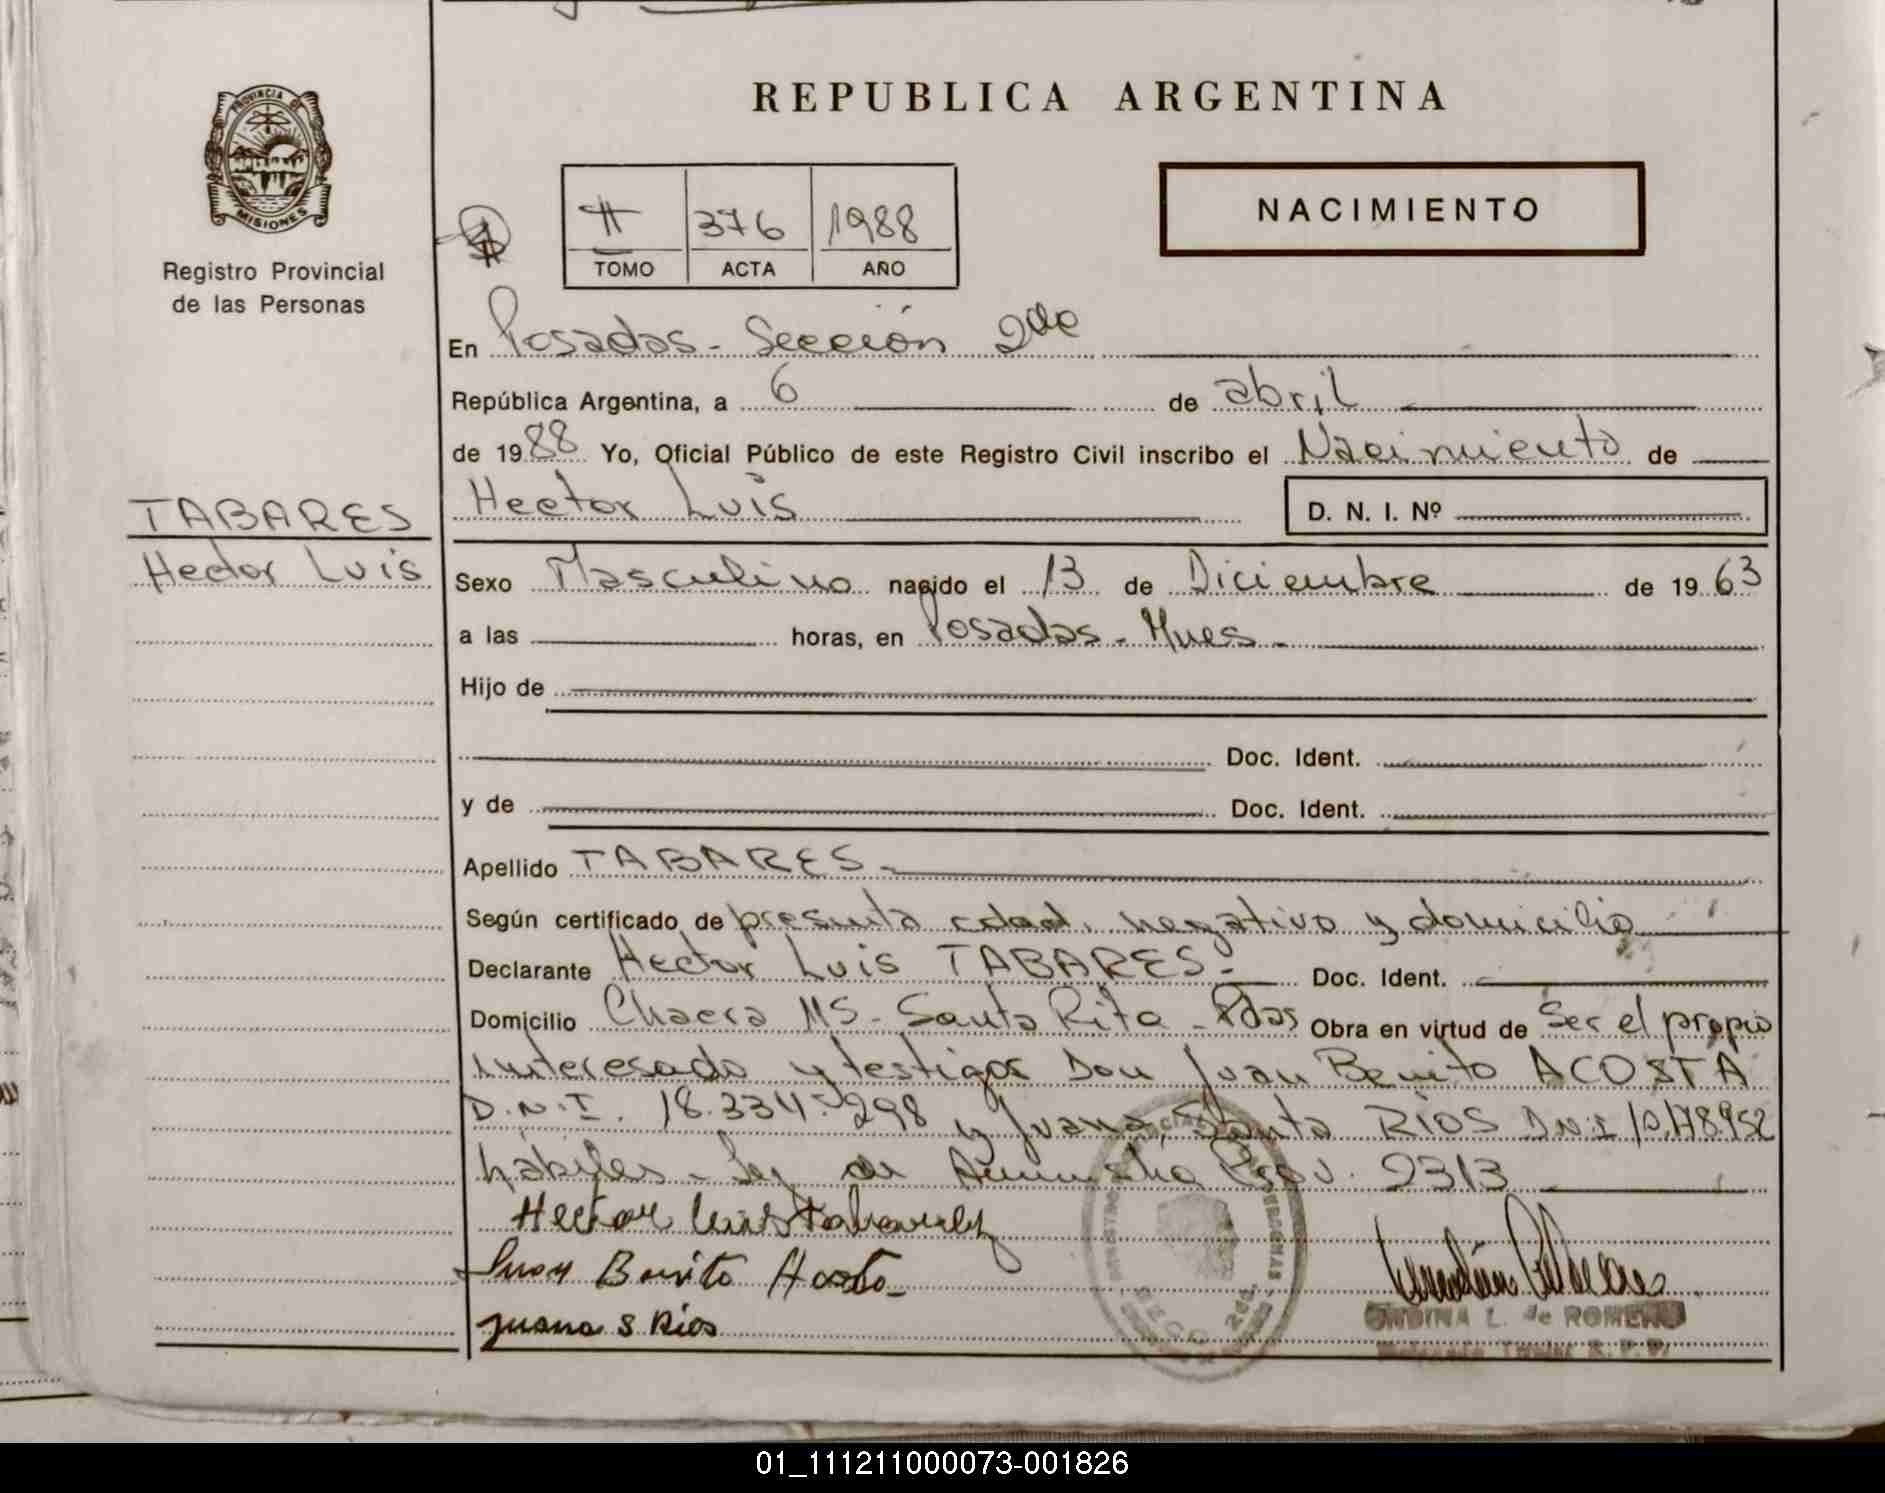 REPUBLICA ARGENTINA
PROVINCIA DE
MISIONES
Registro Provincial
de las Personas
II 376 1988
TOMO ACTA AÑO
NACIMIENTO
En Posadas - Sección 2da
República Argentina, a 6 de abril
de 1988 Yo, Oficial Público de este Registro Civil inscribo el Nacimiento de
Hector Luis D. N. I. Nº
TABARES
Hector Luis
Sexo Masculino nacido el 13 de Diciembre de 1963
a las horas, en Posadas - Mnes -
Hijo de
Doc. Ident.
y de Doc. Ident.
Apellido TABARES -
Según certificado de presunta edad, negativo y domicilio
Declarante Hector Luis TABARES - Doc. Ident.
Domicilio Chacra Santa Rita - Pdas Obra en virtud de Ser el propio
interesado y testigos Don Juan Benito ACOSTA
D.N.I. 18.334.298 y Juana Santa RIOS D.N.I
hábiles - ley de Amnistia Prov. 2313
Hector Luis Tabarez
Juan Benito Acosta
Juana S Rios
ONDINA L. de ROMERO
01_111211000073-001826